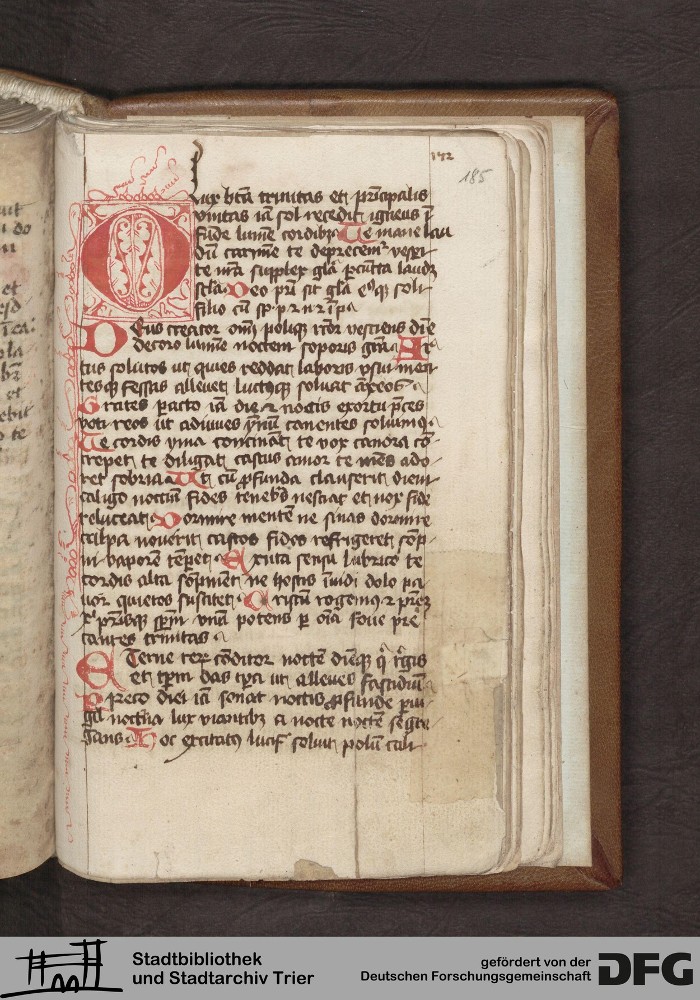 172
185
O lux bt̄a trinitas et pͥncipalis
vnitas iā sol recedit igneus ī
fūde lumē cordibꝫ Te mane lau
dū carmīe te deprecemͬ vesꝑi
te nrā supplex glā ꝑ cūcta laudꝫ
scl̄a Deo pr̄i sit glā eiꝰqꝫ soli
filio cū sp̄
Deus creator om̄ī poliqꝫ rc̄or vestiens diē
decoro lumīe noctem soporis grā Ar
tus solutos ut quies reddat laboris vsui men
tesqꝫ fessas alleuet luctꝰqꝫ soluat
Grates ꝑacto iā die et noctis exortu p̄ces
voti reos ut adiuues ymnū canentes soluimꝰ
Te cordis yma concinat te vox canora cō
crepet te diligat castus amor te mēs ado
ret sobria Ut cū ꝓfunda clauserit diem
caligo noctiū fides tenebͣs nesciat et nox fide
reluceat Dormire mentē ne sinas dormire
culpa nouerit castos fides refrigeret somp
ni vaporē temꝑet Exuta sensu lubrico te
cordis alta sōpnient ne hostis īuidi dolo pa
uor quietos suscitet Cristū rogemus et pr̄em
xͥ pr̄isqꝫ sp̄m vnū potens ꝑ oīa foue pre
cantes trinitas
Eterne rex cōditor noctē diēqꝫ qͥ rͤgis
et tp̄m das tpͣa ut alleues fastidiū
Preco diei iā sonat noctis ꝓfunde ꝑui
gil nocturna lux viantibꝫ a nocte noctē segre
gans Hoc excitatꝰ lucifͬ soluit polū cali
Stadtbibliothek
und Stadtarchiv Trier
gefördert von der
Deutschen Forschungsgemeinschaft
DFG